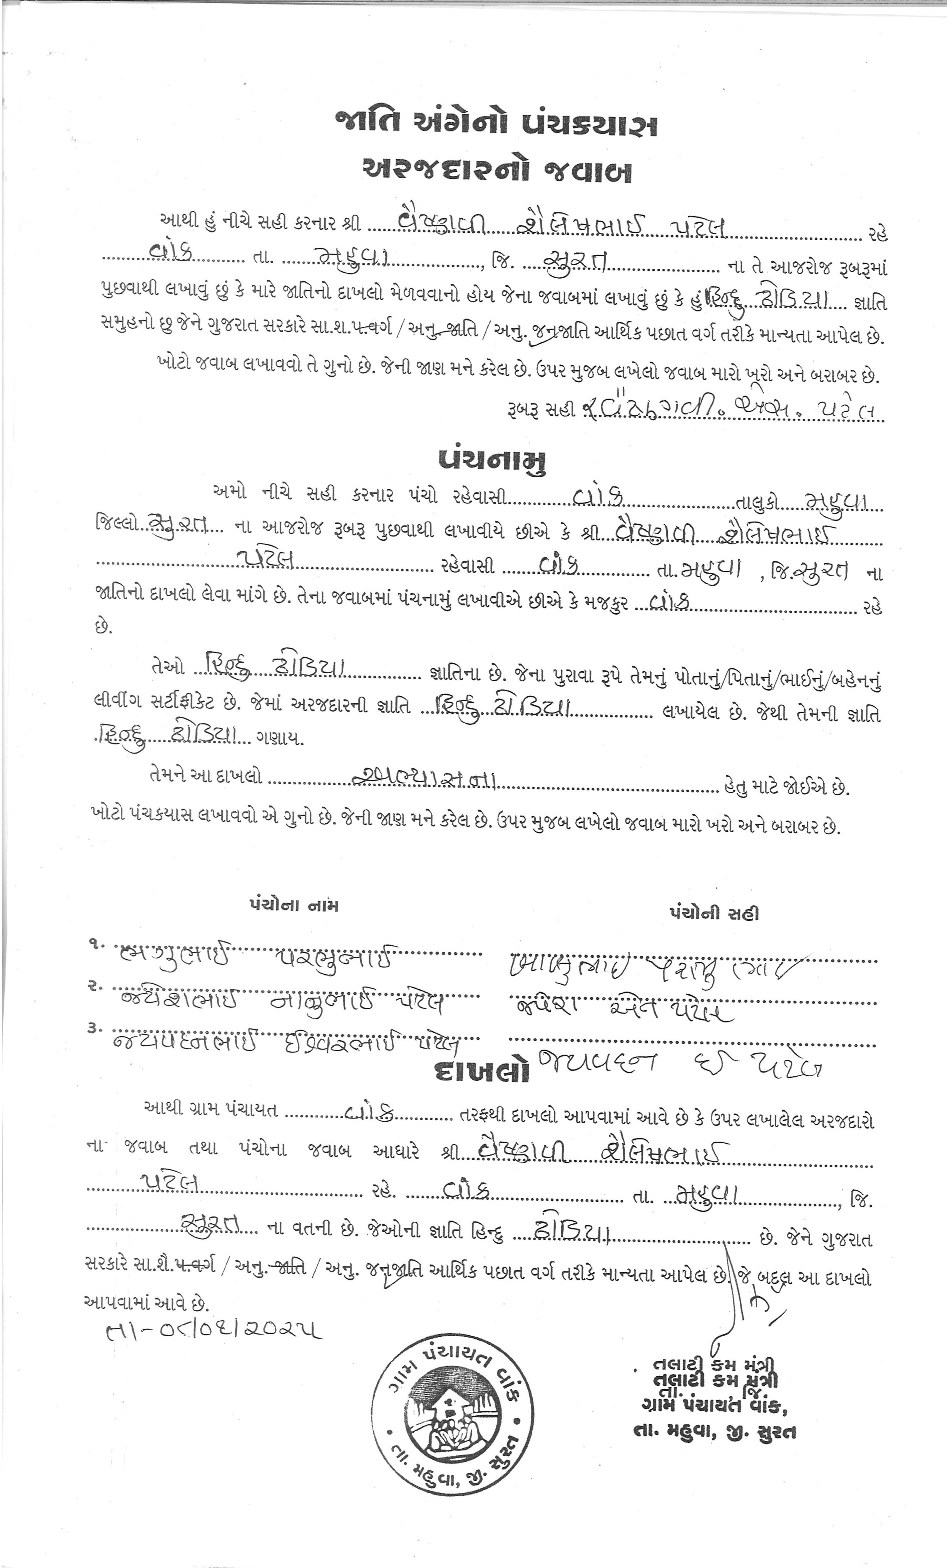 જાતિ અંગેનો પંચકયાસ
અરજદારનો જવાબ
આથી હું નીચે સહી કરનાર શ્રી વૈષ્ણવી શૈલેષભાઈ પટેલ રહે
વાંક તા. મહુવા, જિ. સુરત ના તે આજરોજ રૂબરૂમાં
પુછવાથી લખાવું છું કે મારે જાતિનો દાખલો મેળવવાનો હોય જેના જવાબમાં લખાવું છું કે હું હિન્દુ ઢોડિયા જ્ઞાતિ
સમુહનો છુ જેને ગુજરાત સરકારે સા.શ.પ.વર્ગ / અનુ. જાતિ / અનુ. જનજાતિ આર્થિક પછાત વર્ગ તરીકે માન્યતા આપેલ છે.
ખોટો જવાબ લખાવવો તે ગુનો છે. જેની જાણ મને કરેલ છે. ઉપર મુજબ લખેલો જવાબ મારો ખૂરો અને બરાબર છે.
રૂબરૂ સહી વૈષ્ણવી. એસ. પટેલ
પંચનામુ
અમો નીચે સહી કરનાર પંચો રહેવાસી વાંક તાલુકો મહુવા
જિલ્લો સુરત ના આજરોજ રૂબરૂ પુછવાથી લખાવીયે છીએ કે શ્રી વૈષ્ણવી શૈલેષભાઈ
પટેલ રહેવાસી વાંક તા. મહુવા , જિ. સુરત ના
જાતિનો દાખલો લેવા માંગે છે. તેના જવાબમાં પંચનામું લખાવીએ છીએ કે મજકુર વાંક રહે
છે.
તેઓ હિન્દુ ઢોડિયા જ્ઞાતિના છે. જેના પુરાવા રૂપે તેમનું પોતાનું/પિતાનું/ભાઈનું/બહેનનું
લીવીંગ સર્ટીફીકેટ છે. જેમાં અરજદારની જ્ઞાતિ હિન્દુ ઢોડિયા લખાયેલ છે. જેથી તેમની જ્ઞાતિ
હિન્દુ ઢોડિયા ગણાય.
તેમને આ દાખલો અભ્યાસના હેતુ માટે જોઈએ છે.
ખોટો પંચકયાસ લખાવવો એ ગુનો છે. જેની જાણ મને કરેલ છે. ઉપર મુજબ લખેલો જવાબ મારો ખરો અને બરાબર છે.
પંચોના નામ પંચોની સહી
૧. ભગુભાઈ પરભુભાઈ
૨. જયેશભાઈ નાનુભાઈ પટેલ જયેશ એન પટેલ
૩. જયવદનભાઈ ઈશ્વરભાઈ પટેલ જયવદન ઈ પટેલ
દાખલો
આથી ગ્રામ પંચાયત વાંક તરફથી દાખલો આપવામાં આવે છે કે ઉપર લખાલેલ અરજદારો
ના જવાબ તથા પંચોના જવાબ આધારે શ્રી વૈષ્ણવી શૈલેષભાઈ
પટેલ રહે. વાંક તા. મહુવા, જિ.
સુરત ના વતની છે. જેઓની જ્ઞાતિ હિન્દુ ઢોડિયા છે. જેને ગુજરાત
સરકારે સા.શૈ.પ.વર્ગ / અનુ. જાતિ / અનુ. જનજાતિ આર્થિક પછાત વર્ગ તરીકે માન્યતા આપેલ છે. જે બદલ આ દાખલો
આપવામાં આવે છે.
તલાટી કમ મંત્રી
તલાટી કમ મંત્રી
તા. જિ.
ગ્રામ પંચાયત વાંક,
તા. મહુવા, જી. સુરત
ગ્રામ પંચાયત વાંક
તા. મહુવા, જી. સુરત